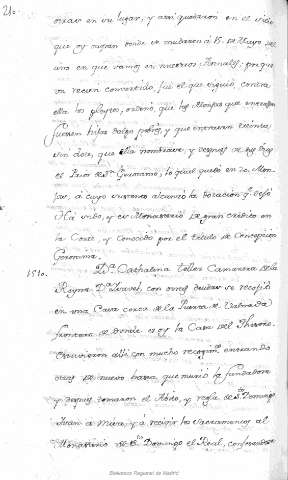 21.
entrar en su lugar, y assi quedaron en el sitio
que oy miran donde se mudaron à 15. de Mayo del
año en que vamos en nuestros Annales; porque
un recien convertido, fue el que siguió, contra
ella los pleytos, ordenó, que las Monjas que entrasen
fuesen hijas dalgo pobres, y que entrasen treinta
sin dote, que ella nombrase y despues de sus dias
el Prior de Sn. Geronimo, lo qual quedó en 20. Mon
jas, à cuyo numero alcanzó la dotacion q.e dejó
Ha sido, y es Monasterio de gran credito en
la Corte, y conocido por el titulo de Concepcion
Geronima.
1510.
D.a Cathalina Tellez Camarera de la
Reyna D.a Isavel, con otras deudas se recojió
en una Casa cerca de la Puerta de Valnadu
frontera de donde es oy la Casa del Thesoro.
Estuvieron alli con mucho recogim.to entrando
otras de nuevo hasta que murió la fundadora
y despues tomaron el Abito, y regla de S.to Domingo
Ivan à Misa, y à recivir los Sacramentos al
Monasterio de S.to Domingo el Real, confesandose
Biblioteca Regional de Madrid